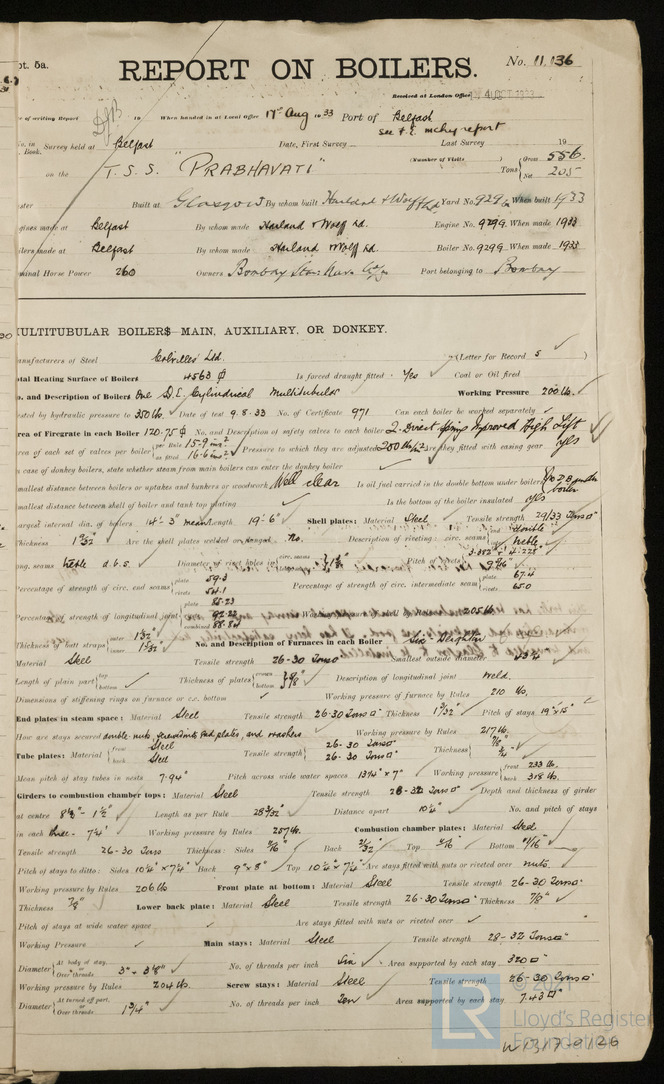 pt. 5a.
REPORT ON BOILERS.
No. 11,136
Received at London Office
of writing Report
When handed in at Local Office 17th Aug 1933 Port of Belfast
see F.E. mchy report
No. in Survey held at Belfast Date, First Survey Last Survey 19
Book.
(Number of Visits ) Tons { Gross 556. Net 205
on the T.S.S. "PRABHAVATI"
ster Built at Glasgow By whom built Harland & Wolff Ld Yard No. 929 G When built 1933
gines made at Belfast By whom made Harland & Wolff Ld. Engine No. 929G. When made 1933
ilers made at Belfast By whom made Harland Wolff Ld. Boiler No. 929G When made 1933
minal Horse Power 260 Owners Bombay Steam Navn Coy Port belonging to Bombay
ULTITUBULAR BOILERS MAIN, AUXILIARY, OR DONKEY.
anufacturers of Steel Colvilles Ltd. (Letter for Record S )
otal Heating Surface of Boilers 4563 Is forced draught fitted Yes Coal or Oil fired
o. and Description of Boilers One D.E. Cylindrical Multitubular Working Pressure 200 lb.
ested by hydraulic pressure to 350 lb. Date of test 9.8.33 No. of Certificate 971 Can each boiler be worked separately
rea of Firegrate in each Boiler 120.75 No. and Description of safety valves to each boiler 2-direct spring Improved High Lift
rea of each set of valves per boiler { per Rule 15.9 in² as fitted 16.6 in² Pressure to which they are adjusted 200 lb/in² Are they fitted with easing gear yes
n case of donkey boilers, state whether steam from main boilers can enter the donkey boiler
mallest distance between boilers or uptakes and bunkers or woodwork Well clear Is oil fuel carried in the double bottom under boilers No D.B. under boiler
mallest distance between shell of boiler and tank top plating Is the bottom of the boiler insulated yes
argest internal dia. of boilers 14'-3" mean Length 19'-6" Shell plates: Material Steel Tensile strength 29/33 Tons
hickness Are the shell plates welded or flanged No. Description of riveting: circ. seams double
ong. seams treble d.b.s. Diameter of rivet holes in circ. seams Pitch of rivets
Percentage of strength of circ. end seams { plate 59.3 rivets 54.1 Percentage of strength of circ. intermediate seam { plate 67.4 rivets 65.0
Percentage of strength of longitudinal joint { plate 85.23 rivets combined 88.84
Thickness of butt straps { outer inner No. and Description of Furnaces in each Boiler Six Deighton
Material Steel Tensile strength 26-30 Tons Smallest outside diameter
Length of plain part { top bottom Thickness of plates { crown bottom Description of longitudinal joint Weld.
Dimensions of stiffening rings on furnace or c.c. bottom Working pressure of furnace by Rules 210 lb.
End plates in steam space: Material Steel Tensile strength 26-30 Tons Thickness 1 3/32" Pitch of stays 19" x 15"
How are stays secured double nuts, screwed into end plates, and washers Working pressure by Rules 217 lb.
Tube plates: Material { front Steel back Steel Tensile strength { 26-30 Tons 26-30 Tons Thickness { 7/8" 3/4"
Mean pitch of stay tubes in nests 7.94" Pitch across wide water spaces 13 3/4" x 7" Working pressure { front 233 lb. back 318 lb.
Girders to combustion chamber tops: Material Steel Tensile strength 28-32 Tons Depth and thickness of girder
at centre 8 1/2" - 1 1/2" Length as per Rule 28 3/32" Distance apart 10 1/4" No. and pitch of stays
in each three - 7 1/4" Working pressure by Rules 257 lb. Combustion chamber plates: Material Steel
Tensile strength 26-30 Tons Thickness: Sides Back 21/32" Top Bottom 11/16"
Pitch of stays to ditto: Sides 10 1/4" x 7 1/4" Back 9" x 8" Top 10 1/4" x 7 1/4" Are stays fitted with nuts or riveted over nuts.
Working pressure by Rules 206 lb Front plate at bottom: Material Steel Tensile strength 26-30 Tons
Thickness 7/8" Lower back plate: Material Steel Tensile strength 26-30 Tons Thickness 7/8"
Pitch of stays at wide water space Are stays fitted with nuts or riveted over
Working Pressure Main stays: Material Steel Tensile strength 28-32 Tons
Diameter { At body of stay, or Over threads 3" - 3 1/8" No. of threads per inch Six Area supported by each stay 320
Working pressure by Rules 204 lb. Screw stays: Material Steel Tensile strength 26-30 Tons
Diameter { At turned off part, or Over threads 1 3/4" No. of threads per inch Ten Area supported by each stay 74.3
© 2021
Lloyd's Register
Foundation
W1317-0126